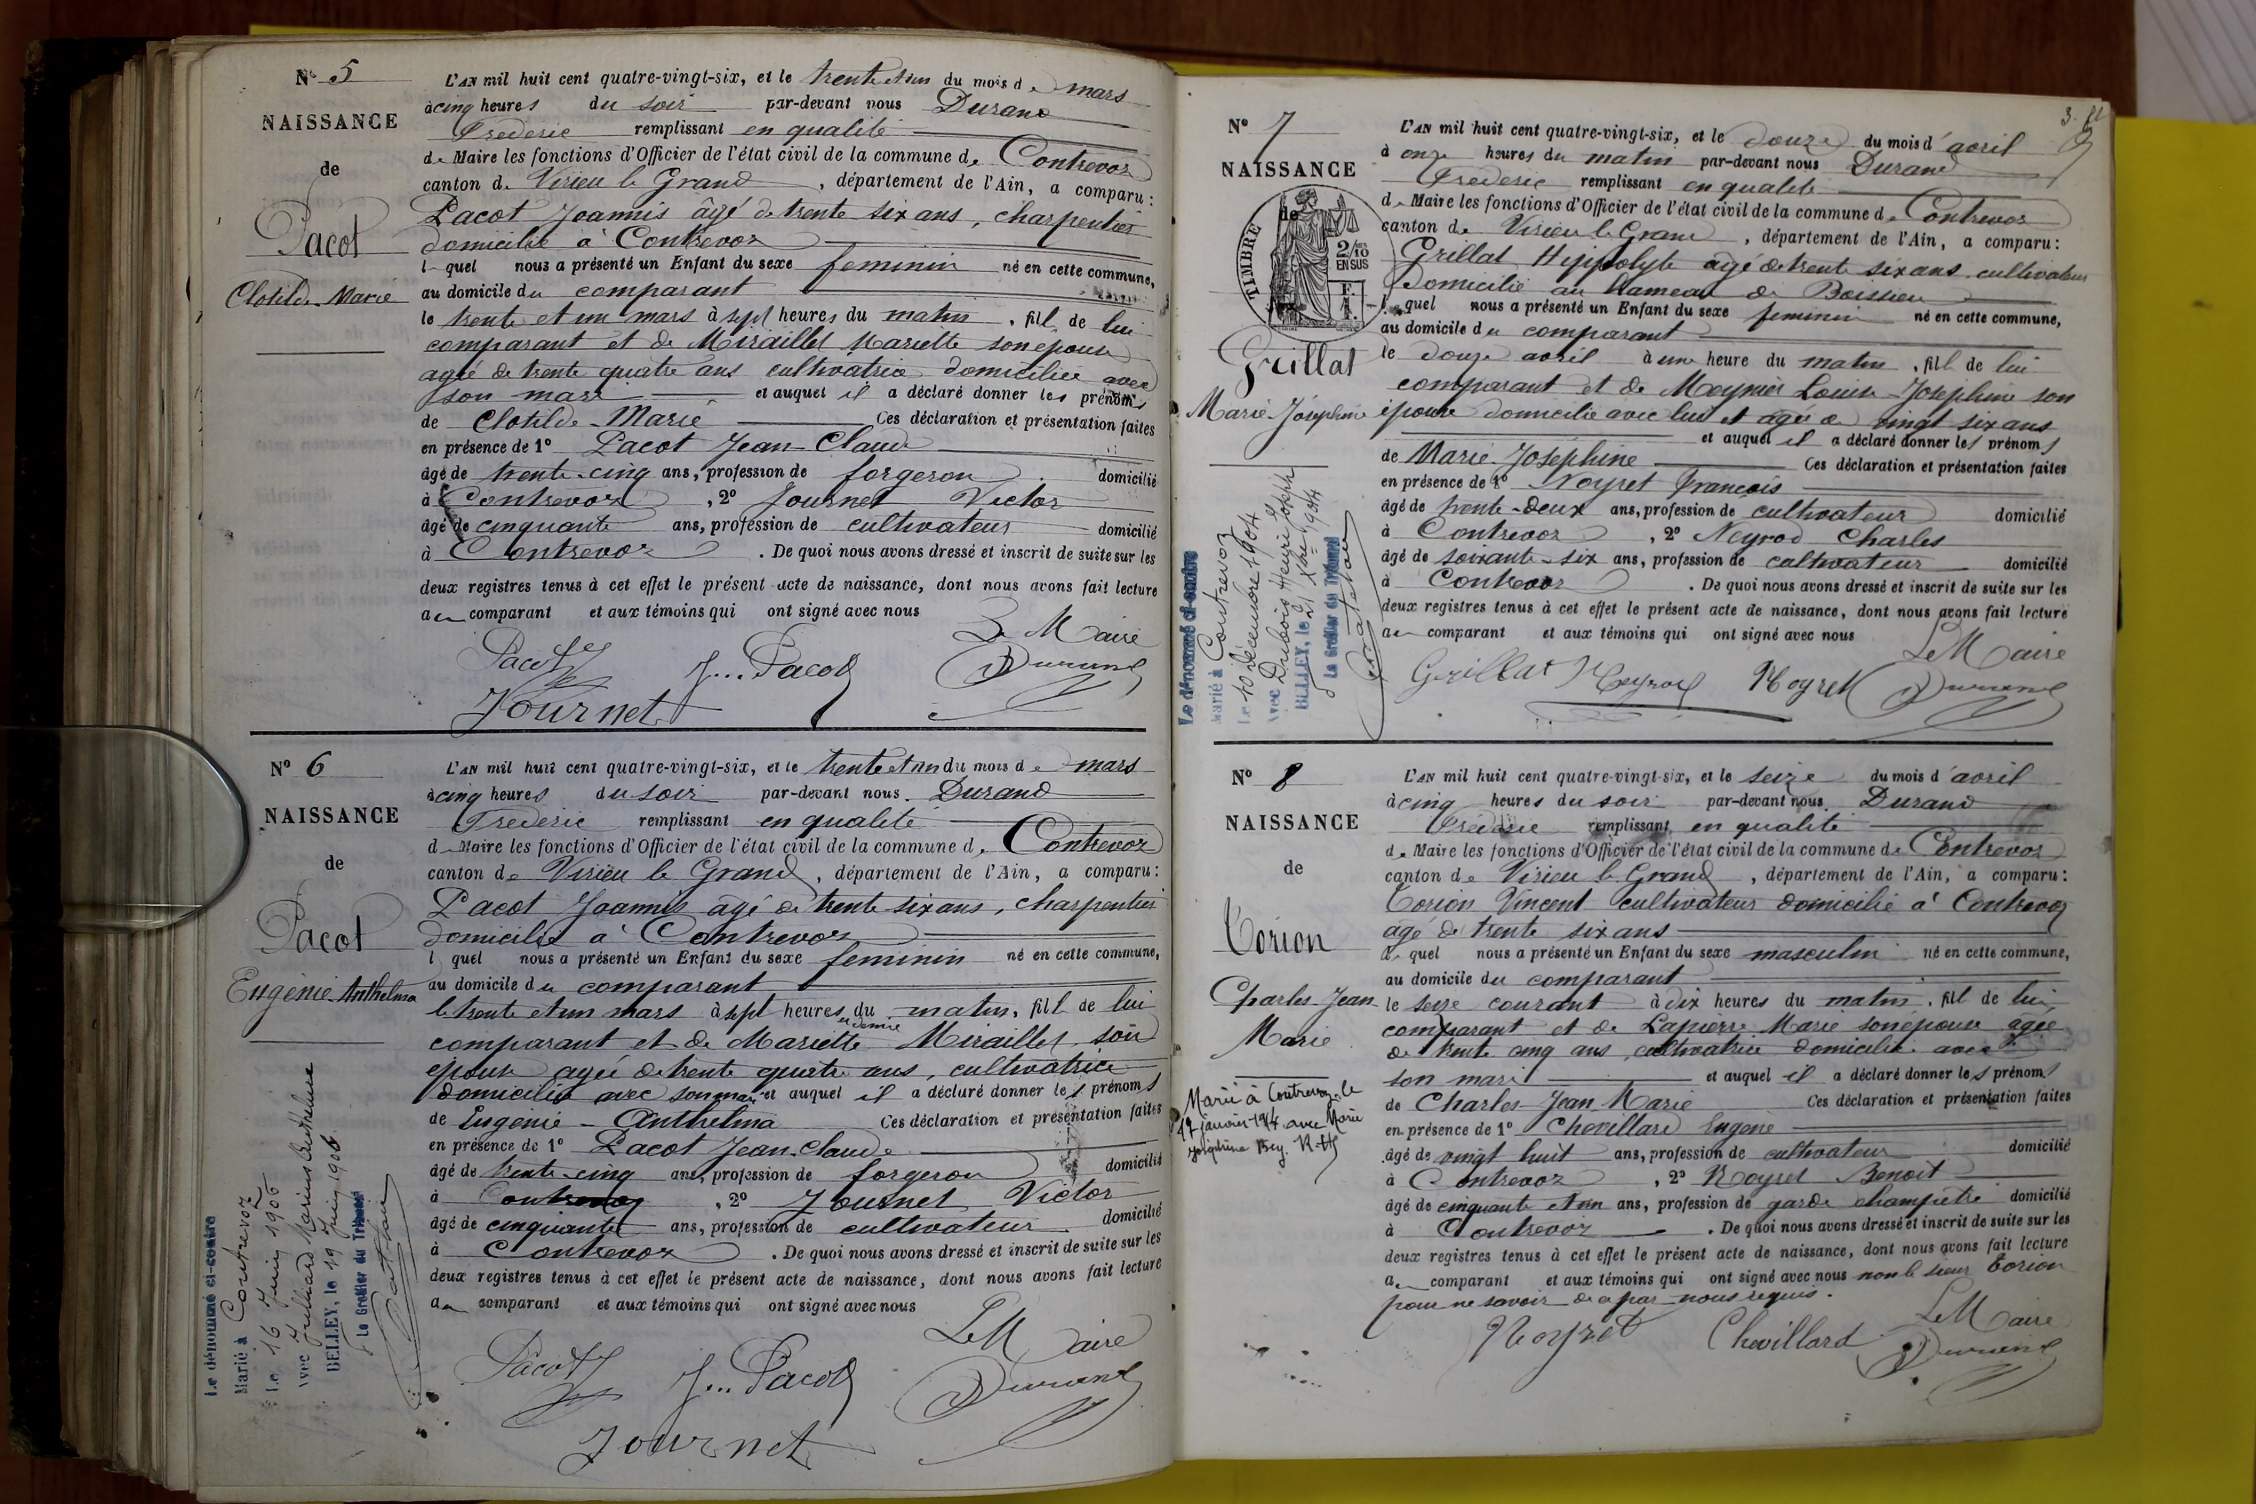 N° 5
NAISSANCE
de
Pacot
Clotilde Marie
L'AN mil huit cent quatre-vingt-six, et le trente et un du mois de mars
à cinq heures du soir par-devant nous Durand
Frédéric remplissant en qualité
de Maire les fonctions d'Officier de l'état civil de la commune de Contrevoz
canton de Virieu le Grand, département de l'Ain, a comparu:
Pacot Joannis âgé de trente six ans, charpentier
domicilié à Contrevoz
lequel nous a présenté un Enfant du sexe feminin né en cette commune,
au domicile du comparant
le trente et un mars à sept heures du matin, fill de lui
comparant et de Miraillet Mariette son épouse
agée de trente quatre ans cultivatrice domiciliée avec
son mari et auquel il a déclaré donner les prénoms
de Clotilde Marie Ces déclaration et présentation faites
en présence de 1° Pacot Jean-Claude
âgé de trente-cinq ans, profession de forgeron domicilié
à Contrevoz, 2° Journet Victor
âgé de cinquante ans, profession de cultivateur domicilié
à Contrevoz. De quoi nous avons dressé et inscrit de suite sur les
deux registres tenus à cet effet le présent acte de naissance, dont nous avons fait lecture
au comparant et aux témoins qui ont signé avec nous
Le Maire
Pacot J... Pacot Durand
Journet
N° 6
NAISSANCE
de
Pacot
Eugénie Anthelma
L'AN mil huit cent quatre-vingt-six, et le trente et un du mois de mars
à cinq heures du soir par-devant nous Durand
Frédéric remplissant en qualité
de Maire les fonctions d'Officier de l'état civil de la commune de Contrevoz
canton de Virieu le Grand, département de l'Ain, a comparu:
Pacot Joannis agé de trente six ans, charpentier
domicilié à Contrevoz
lequel nous a présenté un Enfant du sexe feminin né en cette commune,
au domicile du comparant
le trente et un mars à sept heures et demie du matin, fill de lui
comparant et de Mariette Miraillet son
épouse agée de trente quatre ans, cultivatrice
domiciliée avec son mari et auquel il a déclaré donner les prénoms
de Eugénie-Anthelma Ces déclaration et présentation faites
en présence de 1° Pacot Jean-Claude
âgé de trente-cinq ans, profession de forgeron domicilié
à Contrevoz, 2° Journet Victor
âgé de cinquante ans, profession de cultivateur domicilié
à Contrevoz. De quoi nous avons dressé et inscrit de suite sur les
deux registres tenus à cet effet le présent acte de naissance, dont nous avons fait lecture
au comparant et aux témoins qui ont signé avec nous
Le Maire
Pacot J... Pacot Durand
Journet
Le dénommé ci-contre
Marié à Contrevoz
Le 16 Juin 1906
Avec Juillard Marius
BELLEY, le 19 Juin 1906
Le Greffier du Tribunal
3.
N° 7
NAISSANCE
de
TIMBRE
2/10
EN SUS
Grillat
Marie-Joséphine
L'AN mil huit cent quatre-vingt-six, et le douze du mois d'avril
à onze heures du matin par-devant nous Durand
Frédéric remplissant en qualité
de Maire les fonctions d'Officier de l'état civil de la commune de Contrevoz
canton de Virieu le Grand, département de l'Ain, a comparu:
Grillat Hippolyte agé de trente six ans cultivateur
Domicilié au hameau de Boissieu
lequel nous a présenté un Enfant du sexe feminin né en cette commune,
au domicile du comparant
le douze avril à une heure du matin, fill de lui
comparant et de Meynier Louise Joséphine son
épouse domicilié avec lui et agée de vingt six ans
et auquel il a déclaré donner les prénoms
de Marie-Joséphine Ces déclaration et présentation faites
en présence de 1° Noyret François
âgé de trente-deux ans, profession de cultivateur domicilié
à Contrevoz, 2° Neyrod Charles
âgé de soixante-six ans, profession de cultivateur domicilié
à Contrevoz. De quoi nous avons dressé et inscrit de suite sur les
deux registres tenus à cet effet le présent acte de naissance, dont nous avons fait lecture
au comparant et aux témoins qui ont signé avec nous
Le Maire
Grillat Neyrod Noyret Durand
Le dénommé ci-contre
Marié à Contrevoz
Le 10 Décembre 1904
Avec Dubois Henri Joseph
BELLEY, le 21 Xbre 1904
Le Greffier du Tribunal
N° 8
NAISSANCE
de
Torion
Charles-Jean
Marie
Marié à Contrevoz le
avec Marie
Joséphine Bey.
L'AN mil huit cent quatre-vingt-six, et le seize du mois d'avril
à cinq heures du soir par-devant nous Durand
Frédéric remplissant en qualité
de Maire les fonctions d'Officier de l'état civil de la commune de Contrevoz
canton de Virieu le Grand, département de l'Ain, a comparu:
Torion Vincent cultivateur domicilié à Contrevoz
agé de trente six ans
lequel nous a présenté un Enfant du sexe masculin né en cette commune,
au domicile du comparant
le seize courant à dix heures du matin, fill de lui
comparant et de Lapierre Marie son épouse agée
de trente cinq ans, cultivatrice domiciliée avec
son mari et auquel il a déclaré donner les prénoms
de Charles-Jean Marie Ces déclaration et présentation faites
en présence de 1° Chevillard Eugene
âgé de vingt huit ans, profession de cultivateur domicilié
à Contrevoz, 2° Noyret Benoit
âgé de cinquante et un ans, profession de garde champêtre domicilié
à Contrevoz. De quoi nous avons dressé et inscrit de suite sur les
deux registres tenus à cet effet le présent acte de naissance, dont nous avons fait lecture
au comparant et aux témoins qui ont signé avec nous non le sieur Torion
pour ne savoir de ce par nous requis.
Le Maire
Noyret Chevillard Durand